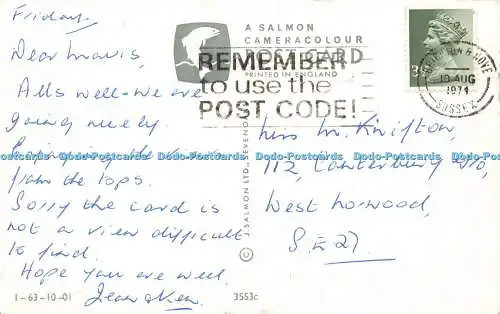 Friday.
Dear Mavis,
All's well - we are
going nicely.
the
from the tops.
Sorry the card is
not a view difficult
to find.
Hope you are well.
Jean & Ken.
1-63-10-01
A SALMON
CAMERACOLOUR
POST CARD
PRINTED IN ENGLAND
REMEMBER
to use the
POST CODE!
J. SALMON LTD., SEVENO
©
3553c
& HOVE
10 AUG
1971
SUSSEX
Miss M. Knifton,
112, Canterbury Gro,
West Norwood,
S.E.27.
Dodo-Postcards Dodo-Postcards Dodo-Postcards Dodo-Postcards Dodo-Postcards